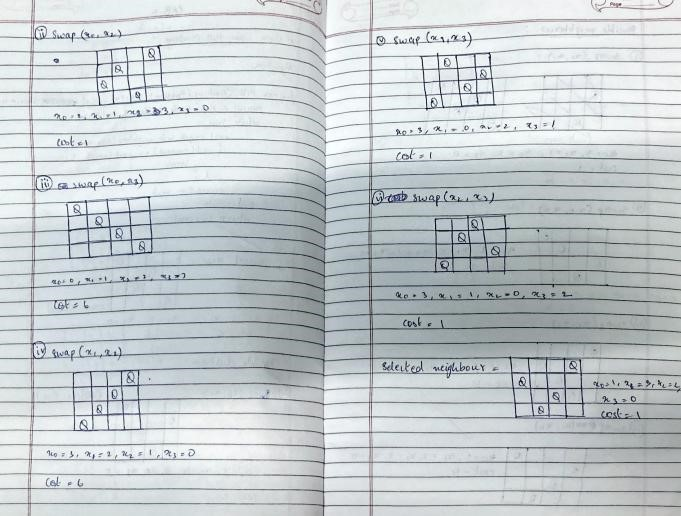 ii) Swap (x0, x2)
Q
Q
Q
Q
x0=2, x1=1, x2=3, x3=0
Cost=1
iii) swap (x0, x3)
Q
Q
Q
Q
x0=0, x1=1, x2=2, x3=3
Cost = 6
iv) Swap (x1, x2)
Q
Q
Q
Q
x0=3, x1=2, x2=1, x3=0
Cost = 6
v) Swap (x1, x3)
Q
Q
Q
Q
x0=3, x1=0, x2=2, x3=1
Cost = 1
vi) swap (x2, x3)
Q
Q
Q
Q
x0=3, x1=1, x2=0, x3=2
Cost = 1
Selected neighbour =
Q
Q
Q
Q
x0=1, x1=3, x2=2,
x3=0
Cost=1
Page